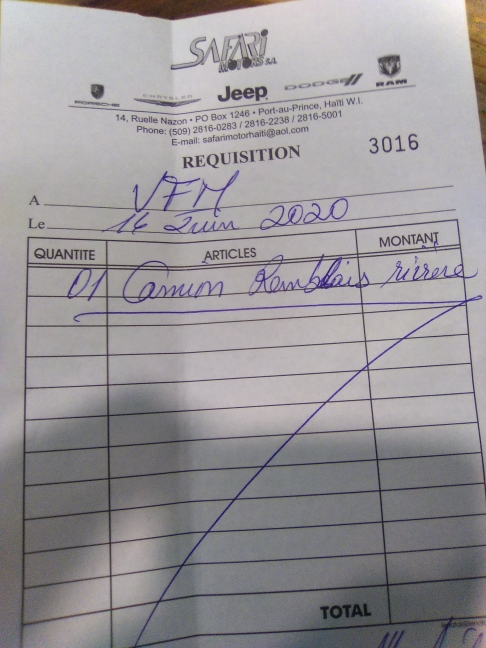 SAFARI
MOTORS S.A.
PORSCHE CHRYSLER Jeep DODGE RAM
14, Ruelle Nazon • PO Box 1246 • Port-au-Prince, Haïti W.I.
Phone: (509) 2816-0283 / 2816-2238 / 2816-5001
E-mail: safarimotorhaiti@aol.com
REQUISITION 3016
A VFM
Le 14 Juin 2020
QUANTITE ARTICLES MONTANT
01 Camion Remblais rivière
TOTAL